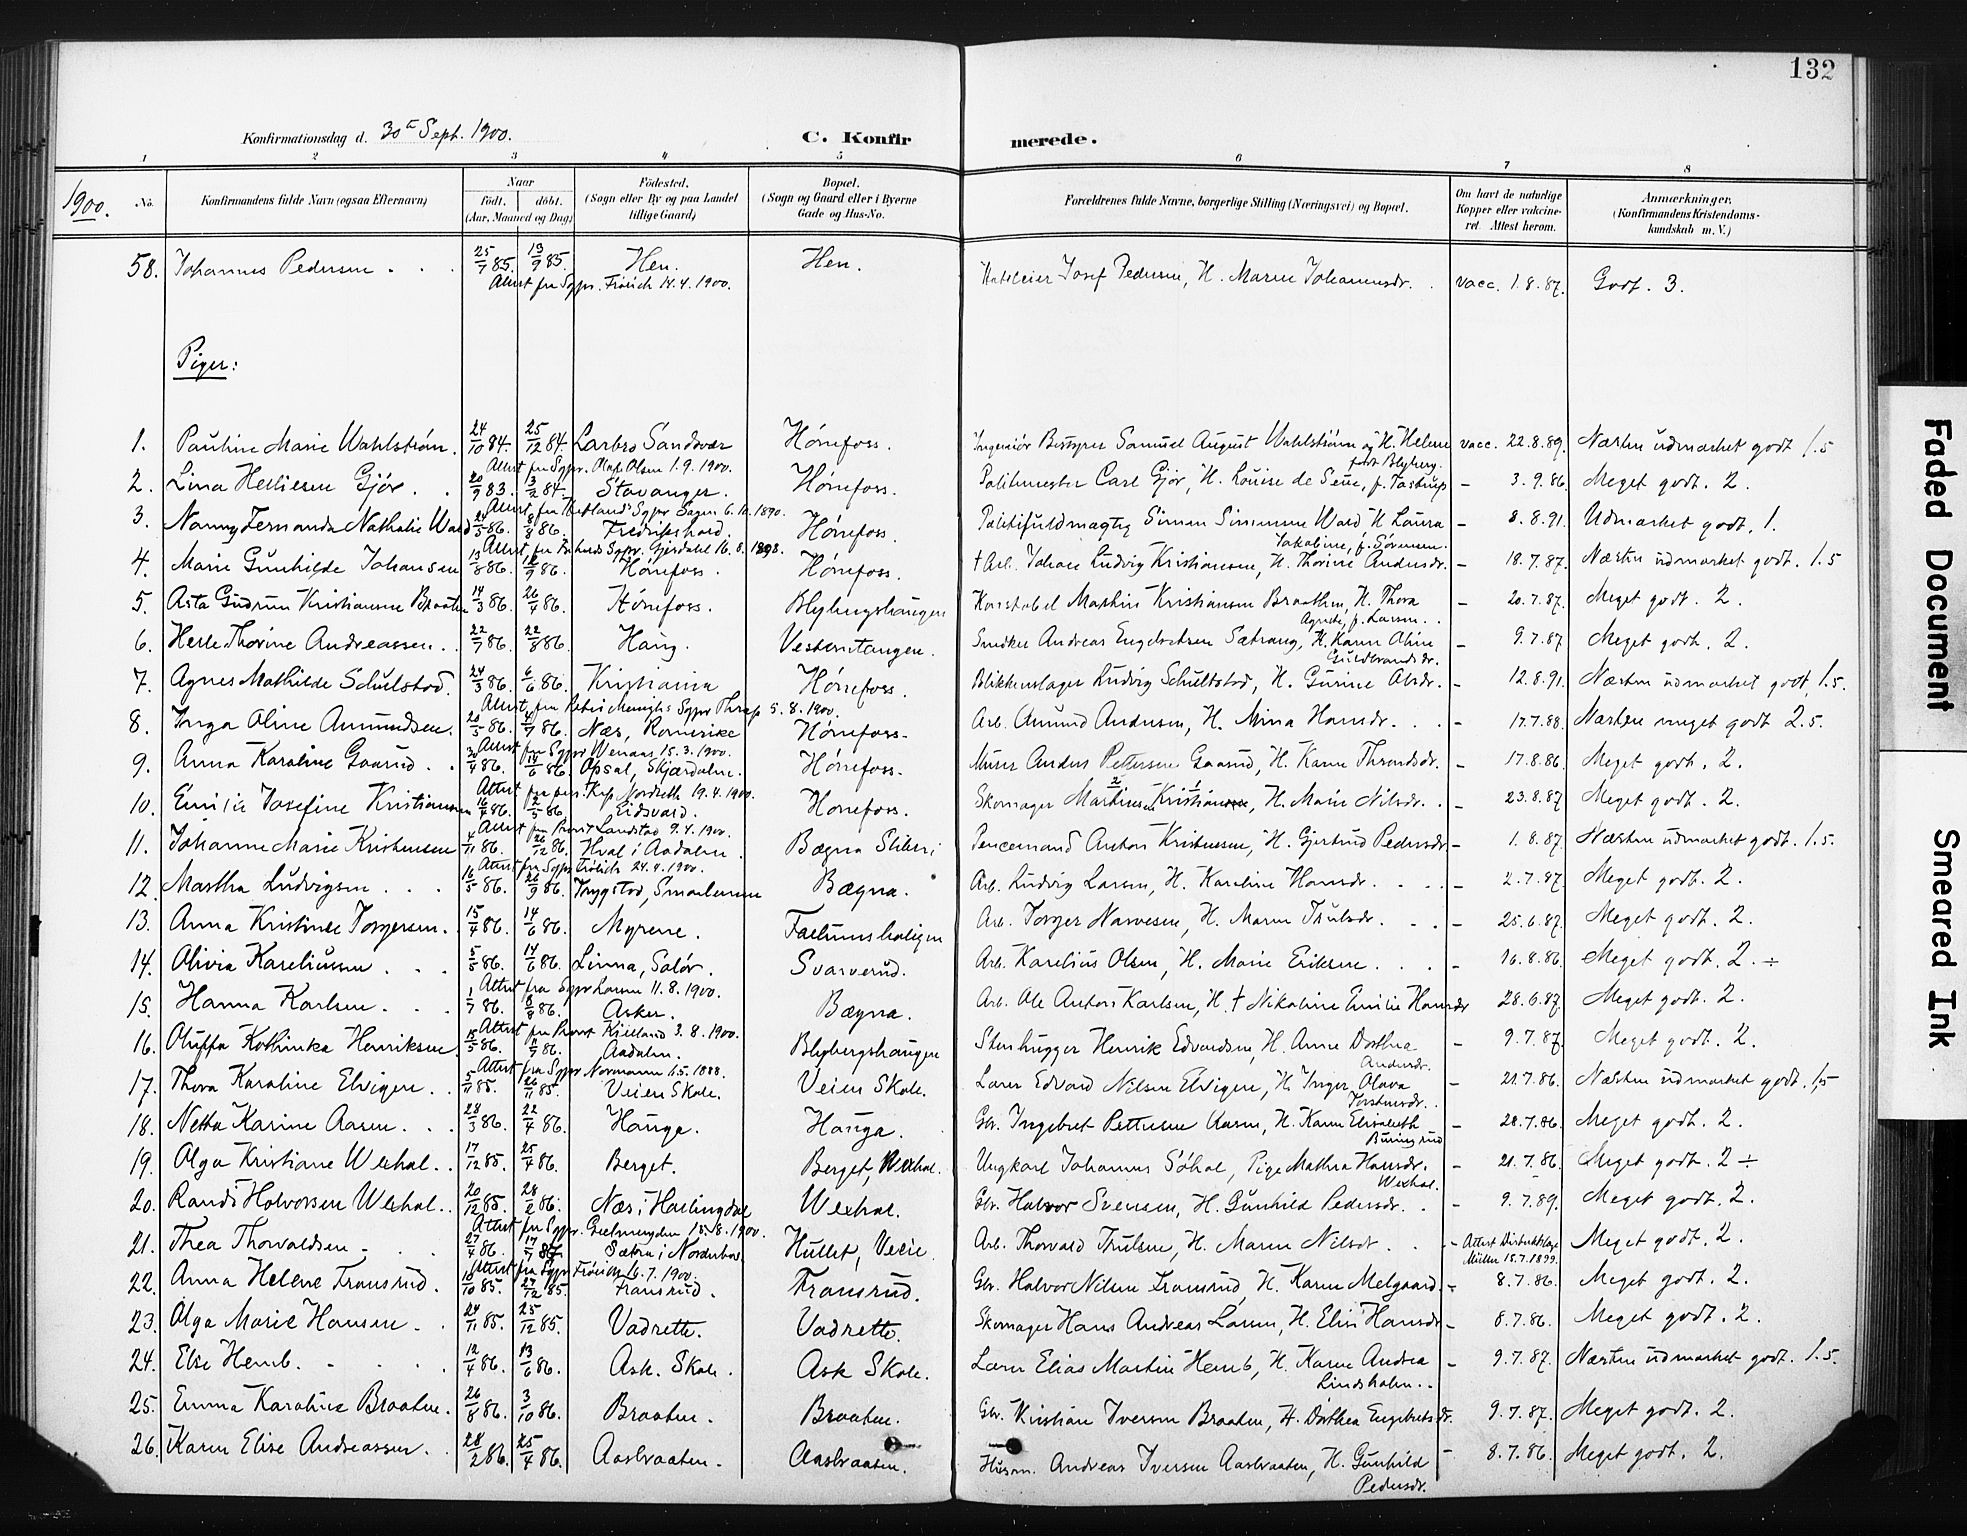 132
Konfirmationsdag d. 30te Sept. 1900. C. Konfirmerede.
1 2 3 4 5 6 7 8
1900. No. Konfirmandens fulde Navn (ogsaa Efternavn) Naar født, døbt. (Aar, Maaned og Dag) Fødested. (Sogn eller By og paa Landet tillige Gaard) Bopæl. (Sogn og Gaard eller i Byerne Gade og Hus-No. Forældrenes fulde Navne, borgerlige Stilling (Næringsvei) og Bopæl. Om havt de naturlige Kopper eller vakcineret. Attest herom. Anmærkninger. (Konfirmandens Kristendomskundskab m. V.)
58. Johannes Pedersen 25/7 85. 13/9 85. Hen. Hen. Josef Pedersen, H. Maren Johannesdr. vacc. 1.8.87. Godt. 3.
Attest fra Sgpr. Frölich 14.4.1900.
Piger:
1. Pauline Marie Wahlstrøm. 24/10 84. 25/12 84. Sandsvær Hønefoss. Ingeniør Samuel August Wahlstrøm og H. Helene født Blyberg. vacc. 22.8.89. Næsten udmærket godt 1.5
Attest fra Sgpr. Olaf Olsen 1.9.1900.
2. Lina Gjør 20/9 83. 13/2 84. Stavanger. Hønefoss. Politimester Carl Gjør, H. Louise de Seue, f. Tostrup – 3.9.86. Meget godt. 2.
3. Nanny Fernanda Nathalie Wald 86. 86. Fredrikshald. Hønefoss. Politifuldmægtig Simon Wald H. Laura Jakobine, f. Sørensen. – 8.8.91. Udmærket godt. 1.
4. Marie Gunhilde Johansen 13/8 86. 12/9 86. Hønefoss. Hønefoss. † Arb. Johan Ludvig Kristiansen, H. Thorine Andersdr. – 18.7.87. Næsten udmærket godt. 1.5
5. Asta Gudrun Kristiansen Braaten 14/3 86. 26/4 86. Hønefoss. Blybergshaugen Konstabel Kristiansen Braathen, H. Thora Agnete, f. Larsen. – 20.7.87. Meget godt. 2.
6. Herle Thorine Andreassen. 22/7 86. 22/8 86. Haug. Vesterntangen. Snedker Andreas Engebretsen Sætrang, H. Karen Oline Guldbrandsdr. – 9.7.87 Meget godt. 2.
7. Agnes Mathilde Schulstad. 24/3 86. 6/6 86. Kristiania Hønefoss. Blikkenslager Ludvig Schultstad, H. Gurine Olsdr. – 12.8.91. Næsten udmærket godt, 1.5.
5.8.1900.
8. Inga Oline Amundsen. 20/5 86. 4/7 86. Næs, Romerike Hønefoss. Arb. Amund Andersen, H. Mina Hansdr. – 17.7.88 Næsten meget godt 2.5.
Attest fra Sgpr 15.3.1900.
9. Anna Karoline Gaarud. 30/4 86. 14/6 86. Opsal, Skjærdalen. Hønefoss. Murer Anders Pettersen Gaarud, H. Karen Throndsdr. – 17.8.86. Meget godt. 2.
Attest fra pers. Kap. Nordseth 19.4.1900.
10. Emilie Josefine Kristiansen 16/4 86. 2/5 86. Eidsvold. Hønefoss. Skomager Martinsen Kristian, H. Marie Nilsdr. – 23.8.87 Meget godt. 2.
Attest fra Provst Landstad 9.4.1900.
11. Johanne Marie Kristensen 4/11 86. 26/12 86. Hval i Aadalen. Bægna Sliberi Anton Kristensen, H. Gjertrud Pedersdr. – 1.8.87. Næsten udmærket godt. 1.5.
Attest fra Sgpr Frölich 24.4.1900.
12. Martha Ludvigsen 16/5 86. 26/9 86. Trygstad, Smaalenene Bægna. Arb. Ludvig Larsen, H. Karoline Hansdr. – 2.7.87. Meget godt. 2.
13. Anna Kristine Torgersen. 15/4 86. 14/6 86. Myrene. Arb. Torger Narvesen, H. Maren Trulsdr. – 25.6.87. Meget godt. 2.
14. Olivia Kareliusen 5/5 86. 14/6 86. Linna, Solør. Svarverud. Arb. Karelius Olsen, H. Marie Eriksen – 16.8.86. Meget godt. 2. ÷
Attest fra Sgpr Larsen 11.8.1900.
15. Hanna Karlsen 1/7 86. 18/8 86. Asker. Bægna. Arb. Ole Anton Karlsen, H. † Nikoline Emilie Hansdr 28.6.87. Meget godt. 2.
Attest fra Provst Kielland 3.8.1900.
16. Oluffa Kathinka Henriksen 15/5 86. 11/7 86. Aadalen. Blybergshaugen Stenhugger Henrik Edvardsen, H. Anne Dorthea Andersdr. – 9.7.87. Meget godt. 2.
Attest fra Sgpr Normann 1888.
17. Thora Karoline Elvigen. 5/11 85. 26/11 85. Veien Skole. Veien Skole. Lærer Edvard Nilsen Elvigen, H. Inger Olava Torstensdr. – 21.7.86. Næsten udmærket godt. 1.5
18. Netta Karine Aasen 28/3 86. 22/4 86. Hauga. Hauga. Gbr. Ingebret Pettersen Aasen, H. Karen Elisabeth Buringrud – 28.7.86. Meget godt. 2.
19. Olga Kristiane Wexhal. 17/12 85. 25/4 86. Berget. Berget, Wexhal. Ungkarl Johannes Søhol, Pige Mathea Hansdr. Wexhal. – 21.7.86. Meget godt. 2 ÷
20. Randi Halvorsen Wexhal. 20/12 85. 28/2 86. Næs i Hallingdal Wexhal. Gbr. Halvor Svensen, H. Gunhild Pedersdr. – 9.7.89. Meget godt. 2.
Attest fra Sgpr. 15.8.1900.
21. Thea Thorvaldsen 27/4 86. 17/7 87 Sætra i Norderhov Hullet, Veien Arb. Thorvald Trulsen, H. Maren Nilsdr. – Attest Distriktslæge Müller 15.7.1899. Meget godt. 2.
Attest fra Sgpr Frölich 16.7.1900.
22. Anna Helene Transrud. 18/10 85. 27/12 85. Transrud. Transrud. Gbr. Halvor Nilsen Transrud, H. Karen Melgaard – 8.7.86. Meget godt. 2.
23. Olga Marie Hansen 24/11 85. 25/12 85. Vadrette. Vadrette. Skomager Hans Andreas Larsen, H. Elise Hansdr – 8.7.86. Meget godt. 2.
24. Else Hemb. 12/4 86. 13/6 86. Ask. Skole. Ask Skole. Lærer Elias Martin Hemb, H. Karen Andrea Lindholm. – 9.7.87. Næsten udmærket godt. 1.5.
25. Emma Karoline Braaten. 26/8 86. 3/10 86. Braaten. Braaten. Gbr. Kristian Iversen Braaten, H. Dorthea Engebretsdr. 9.7.87. Meget godt. 2.
26. Karen Elise Andreassen. 28/2 86. 25/4 86. Aasbraaten. Aasbraaten. Husm. Andreas Iversen Aasbraaten, H. Gunhild Pedersdr. – 8.7.86. Meget godt. 2.
Faded Document
Smeared Ink